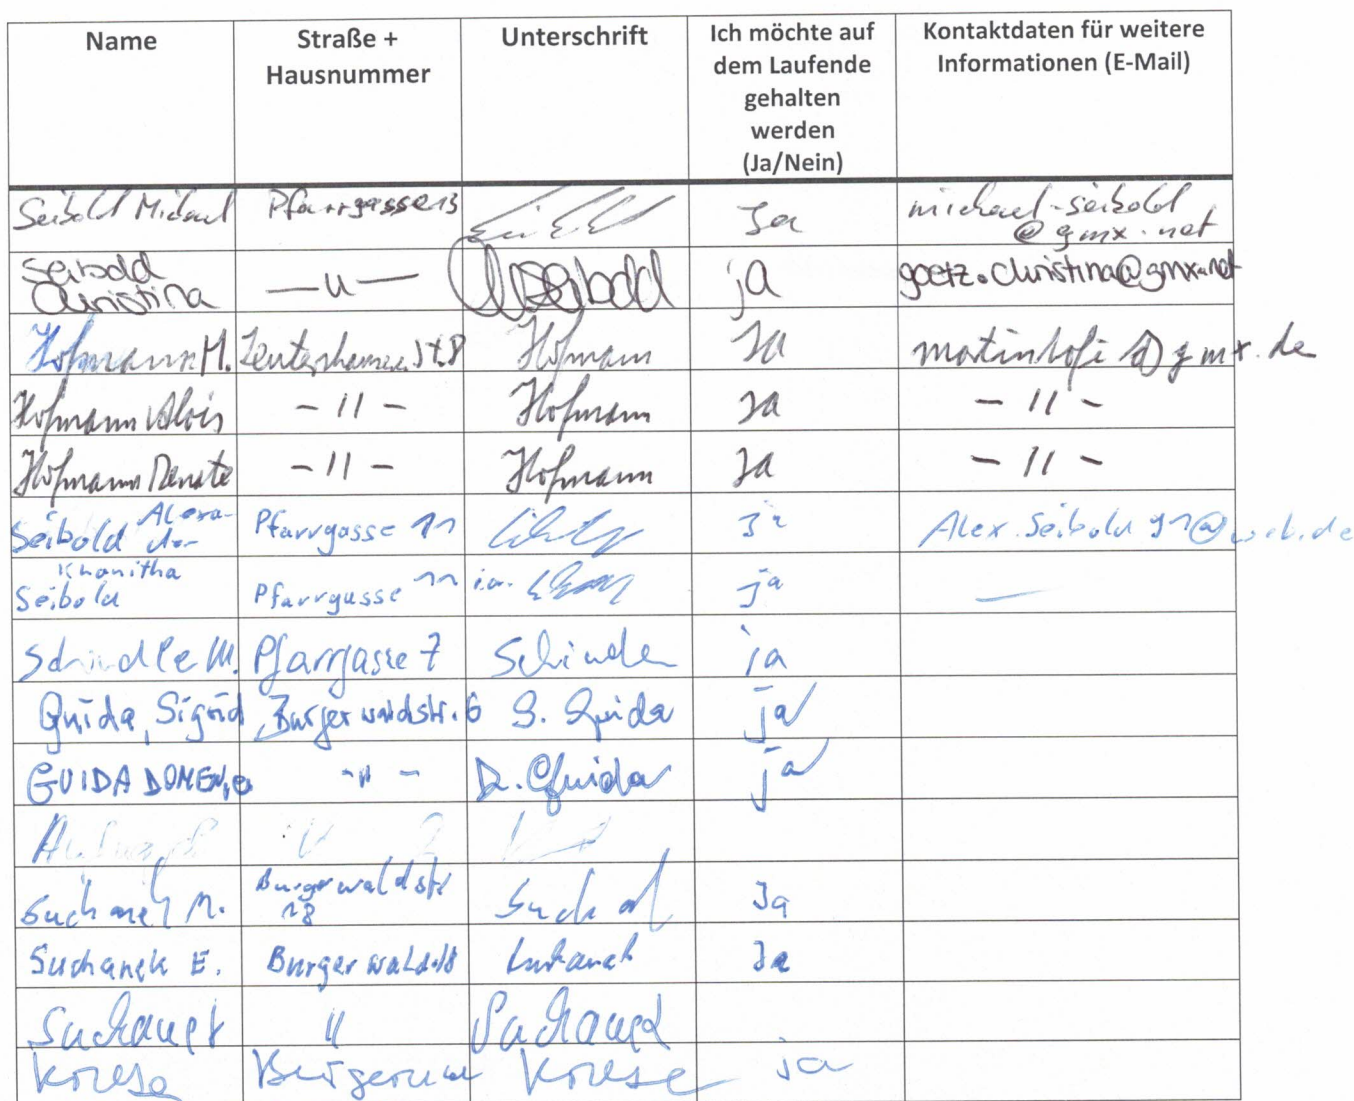 Name Straße + Hausnummer Unterschrift Ich möchte auf dem Laufende gehalten werden (Ja/Nein) Kontaktdaten für weitere Informationen (E-Mail)
Seibold Michael Pfarrgasse 13 Ja michael-seibold
@gmx.net
Seibold
Christina —"— Seibold ja goetz.christina@gmx.net
Hofmann M. Hofmann Ja martinhofi@gmx.de
Hofmann Alois - " - Hofmann Ja - " -
Hofmann Renate - " - Hofmann Ja - " -
Seibold Alexa-
der Pfarrgasse 11 ja Alex.Seibold91@web.de
Khanitha
Seibold Pfarrgasse 11 ja —
Schindle M. Pfarrgasse 7 ja
Guida, Sigrid Burgerwaldstr. 6 S. Guida ja
GUIDA DOMENICO - " - D. Guida ja
Suchanek M. Burgerwaldstr
18 Ja
Suchanek E. Burgerwaldst 18 Suchanek Ja
Suchanek " Suchanek
ja